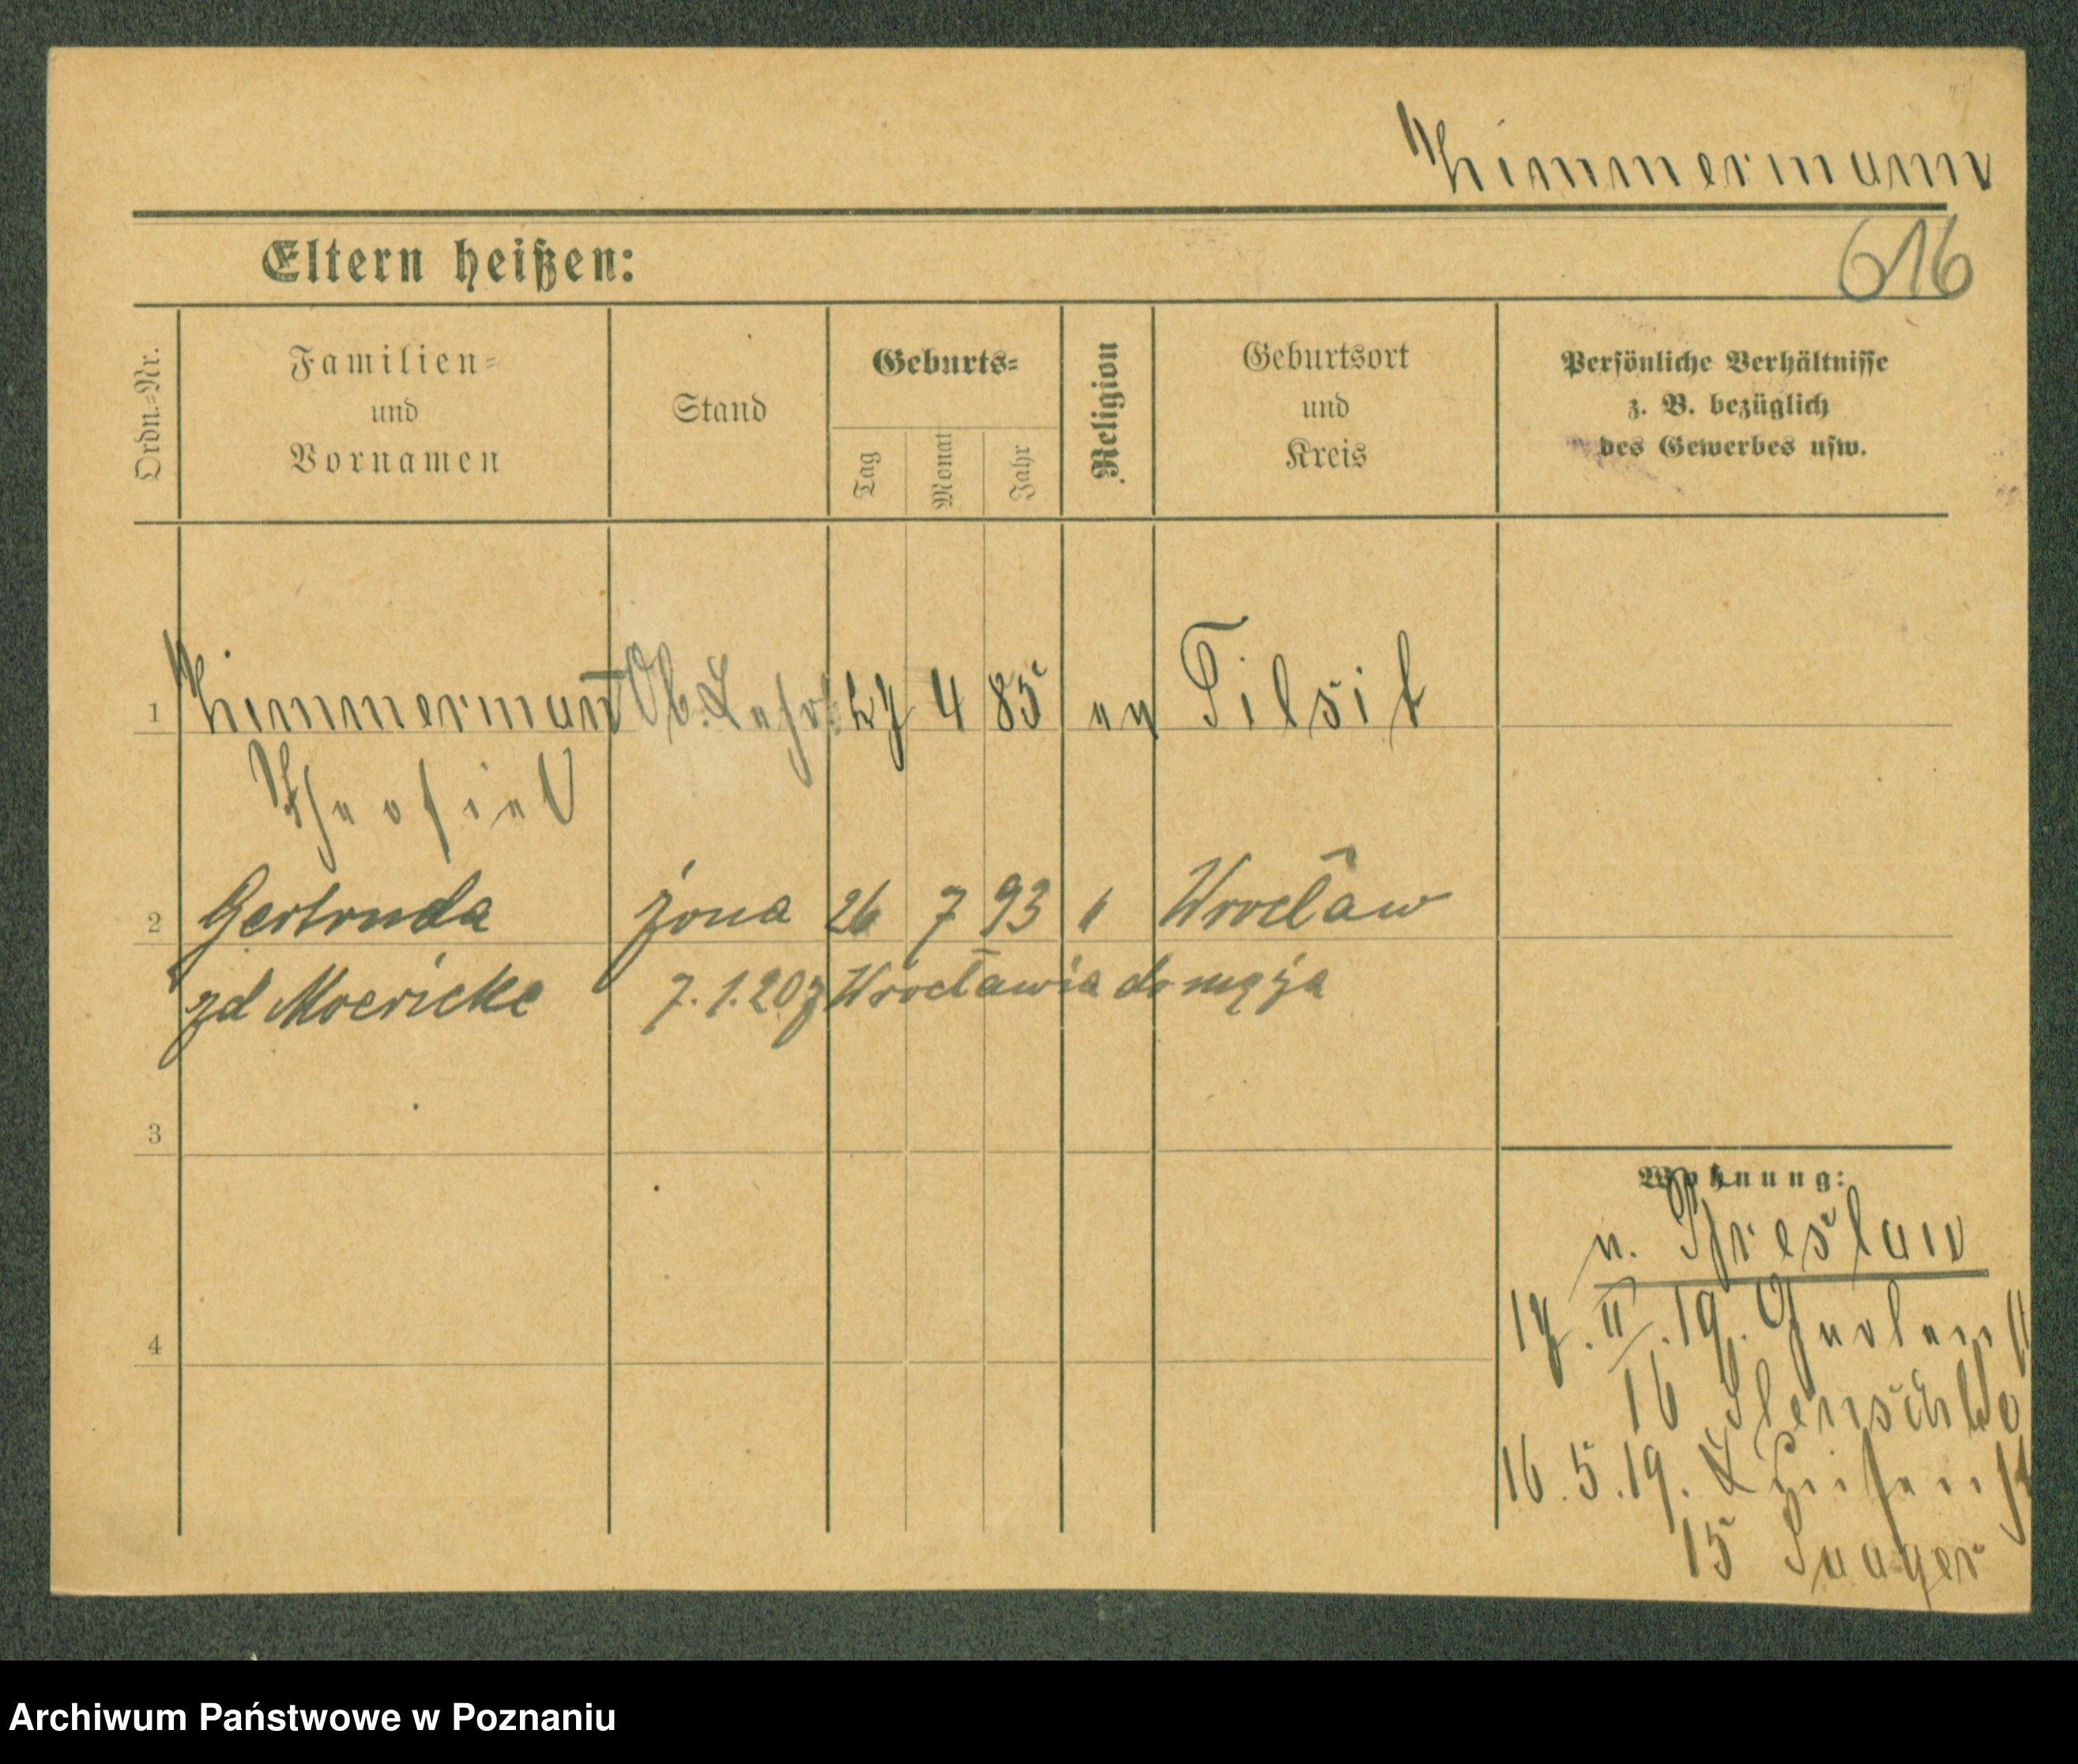 Zimmermann
Eltern heißen:
616
Ordn.=Nr.
Familien=
und
Vornamen
Stand
Geburts=
Tag
Monat
Jahr
Religion
Geburtsort
und
Kreis
Persönliche Verhältnisse
z. B. bezüglich
des Gewerbes usw.
1 Zimmermann Ob. Lehr. 27 4 85 ev Tilsit
Theofiel
2 Gertruda żona 26 7 93 " Wrocław
zd Moericke 7.1.20 z Wrocławia do męża
3
Wohnung:
v. Breslau
17. II. 19.
4
16
16.5.19. Luisenst
15
Archiwum Państwowe w Poznaniu